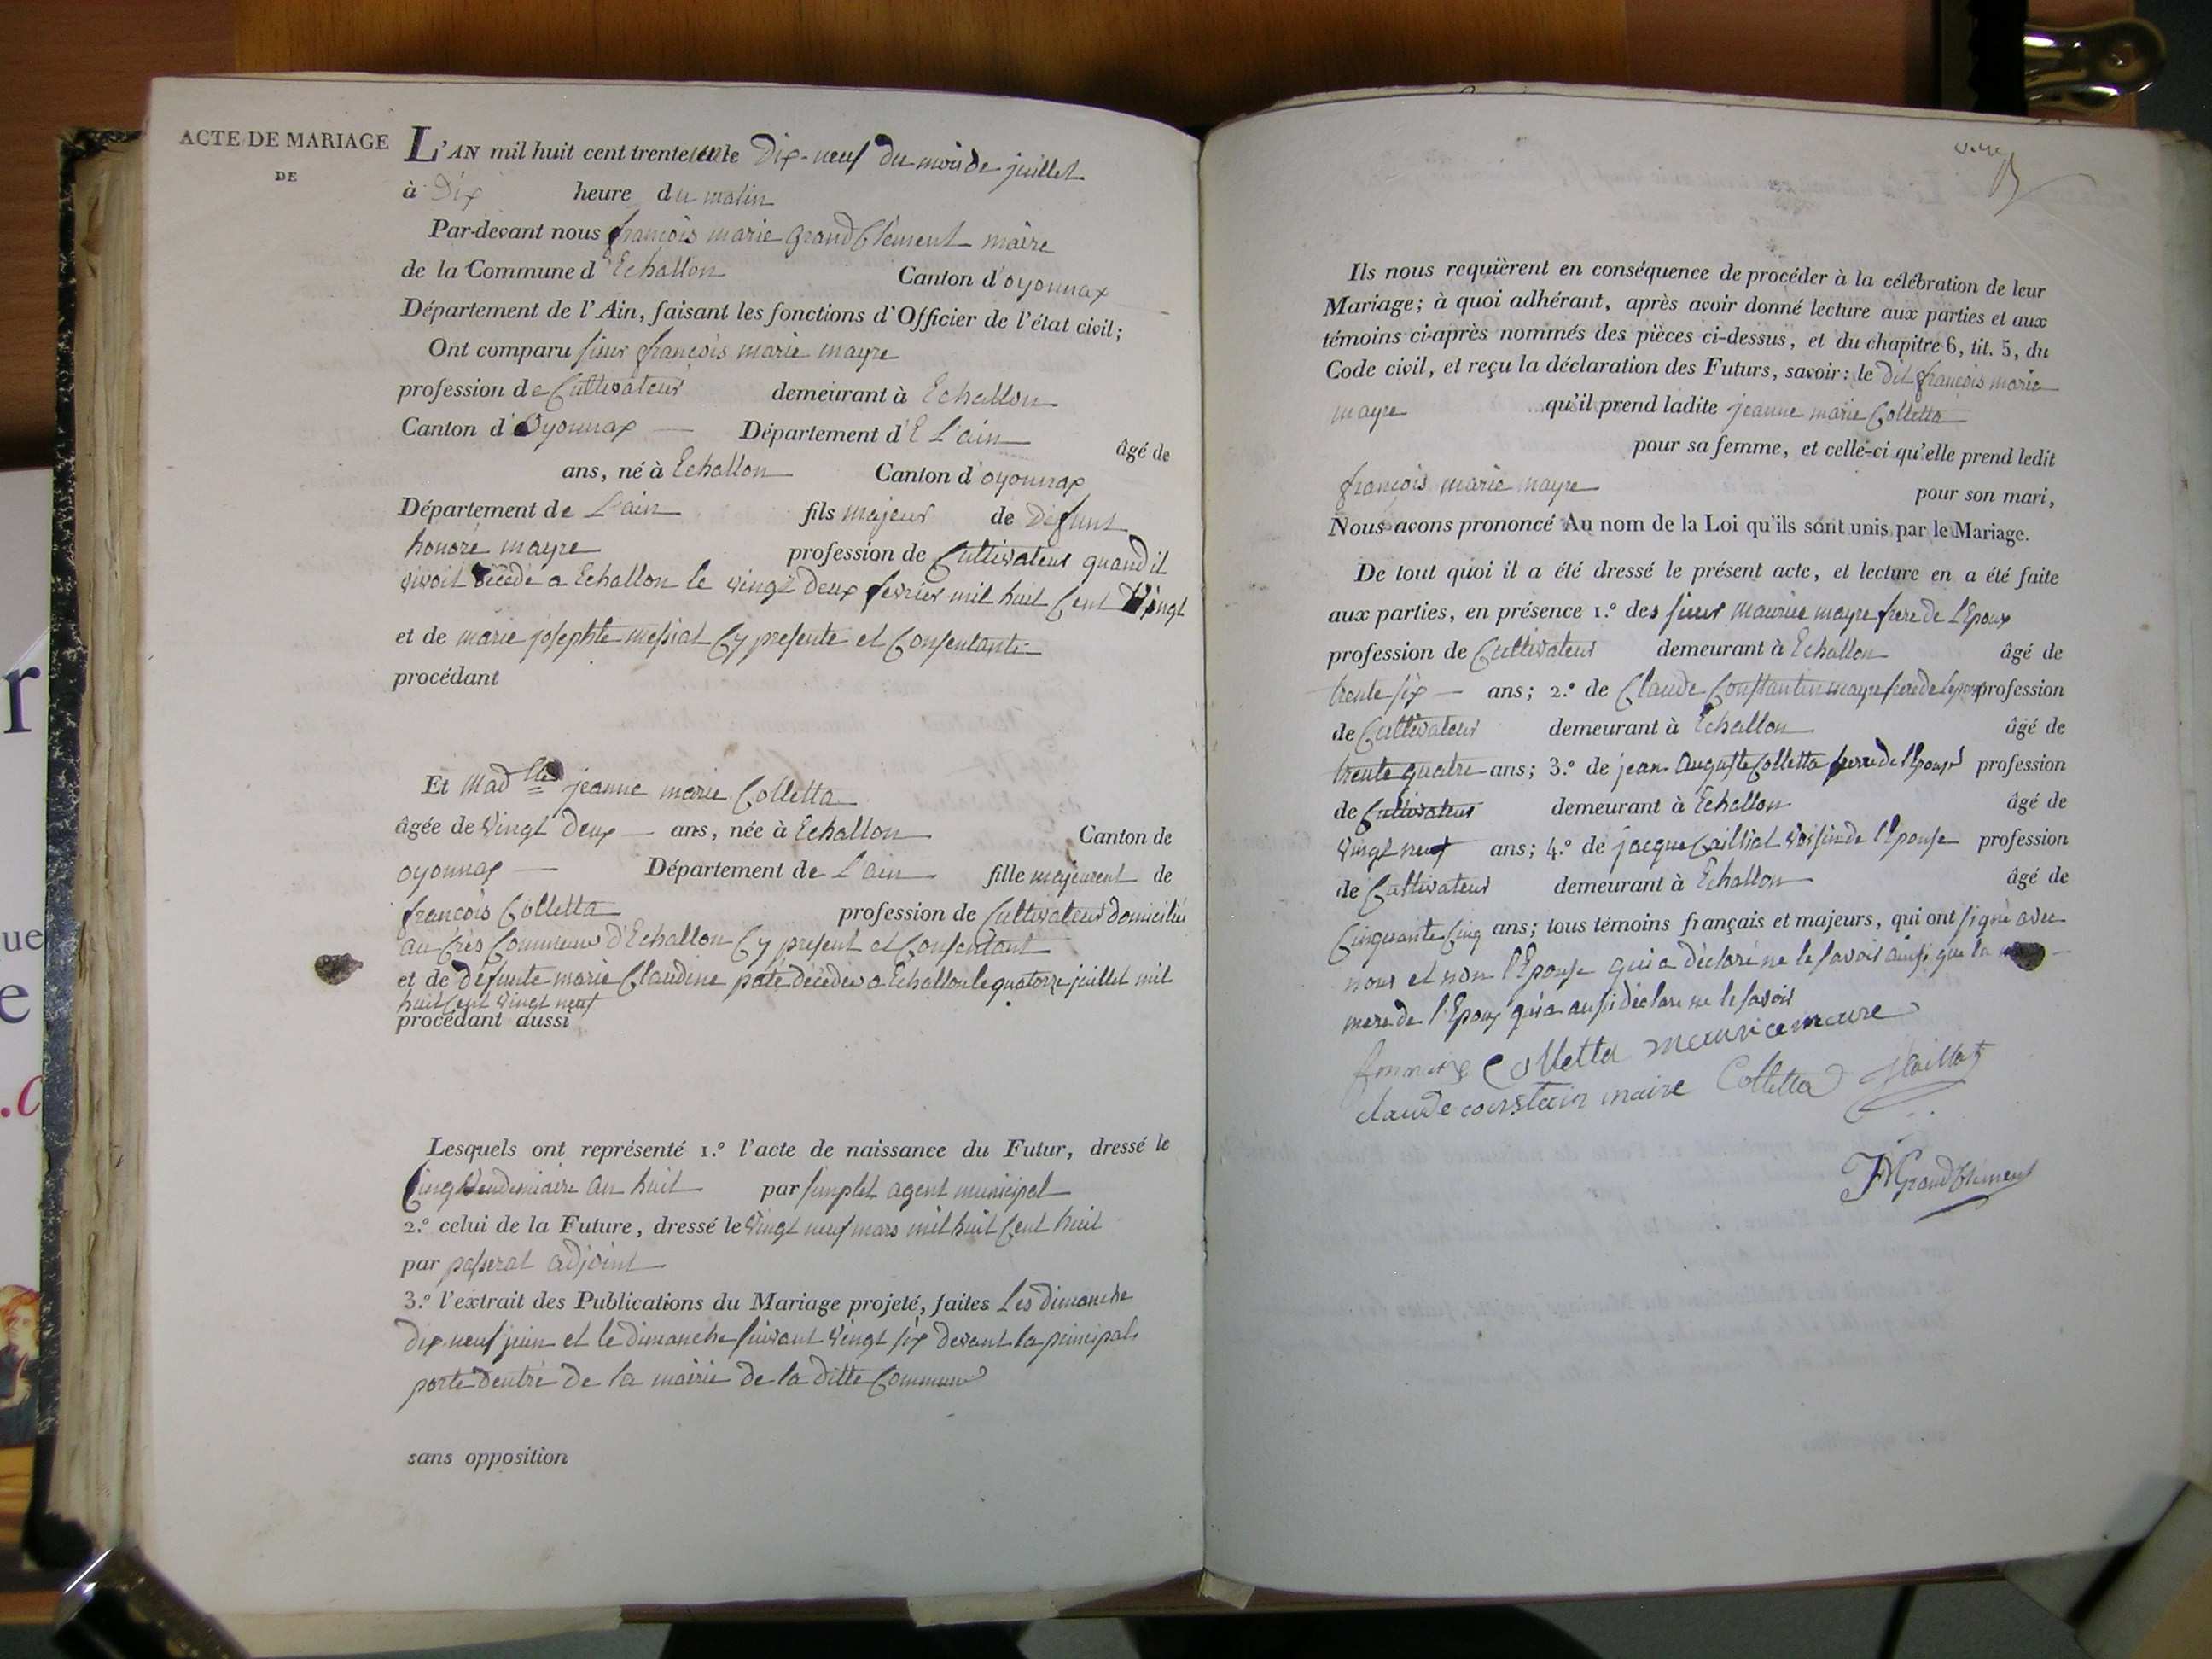 ACTE DE MARIAGE
DE
L'AN mil huit cent trente le Dix-neuf du mois de juillet
à Dix heure du matin
Par-devant nous françois marie grandClément maire
de la Commune d'Echallon Canton d'oyonnax
Département de l'Ain, faisant les fonctions d'Officier de l'état civil;
Ont comparu sieur françois marie mayre
profession de Cultivateur demeurant à Echallon
Canton d'Oyonnax Département d'E L'ain âgé de
ans, né à Echallon Canton d'oyonnax
Département de L'ain fils majeur de défunt
honoré mayre profession de Cultivateur quand il
vivoit décédé a Echallon le vingt deux fevrier mil huit Cent Vingt
et de marie josephte messiat Cy presente et Consentante
procédant
Et Madlle jeanne marie Colletta
âgée de Vingt deux ans, née à Echallon Canton de
oyonnax Département de L'ain fille majeure de
françois Colletta profession de Cultivateur domicilié
au Crès Commune d'Echallon Cy présent et Consentant
et de défunte marie Claudine paté décédée a Echallon le quatorze juillet mil
huit Cent vingt neuf
procédant aussi
Lesquels ont représenté 1.° l'acte de naissance du Futur, dressé le
Cinq Vendemiaire an huit par simplet agent municipal
2.° celui de la Future, dressé le Vingt neuf mars mil huit Cent huit
par passerat adjoint
3.° l'extrait des Publications du Mariage projeté, faites Les dimanche
dix neuf juin et le dimanche suivant Vingt six devant la principale
porte dentré de la mairie de la ditte Commune
sans opposition
Ils nous requièrent en conséquence de procéder à la célébration de leur
Mariage; à quoi adhérant, après avoir donné lecture aux parties et aux
témoins ci-après nommés des pièces ci-dessus, et du chapitre 6, tit. 5, du
Code civil, et reçu la déclaration des Futurs, savoir: le dit françois marie
mayre qu'il prend ladite jeanne marie Colletta
pour sa femme, et celle-ci qu'elle prend ledit
françois marie mayre pour son mari,
Nous avons prononcé Au nom de la Loi qu'ils sont unis par le Mariage.
De tout quoi il a été dressé le présent acte, et lecture en a été faite
aux parties, en présence 1.° des sieur maurice mayre frere de l'Epoux
profession de Cultivateur demeurant à Echallon âgé de
trente six ans; 2.° de Claude Constantin mayre frere de l'epoux profession
de Cultivateur demeurant à Echallon âgé de
trente quatre ans; 3.° de jean Auguste Colletta frere de l'Epouse profession
de Cultivateur demeurant à Echallon âgé de
Vingt neuf ans; 4.° de jacque Cailliat Voisin de l'Epouse profession
de Cultivateur demeurant à Echallon âgé de
Cinquante Cinq ans; tous témoins français et majeurs, qui ont signé avec
nous et non l'Epouse qui a déclaré ne le savoir ainsi que la
mere de l'Epoux qui a aussi déclaré ne le savoir
Colletta maurice maire
claude constain maire Colletta Caillat
FMGrandClement